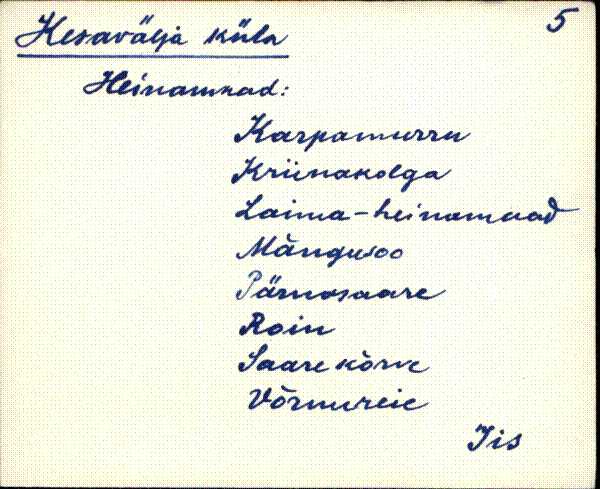 5
Kesavälja küla
Heinamaad:
Karpamurru
Kriinakolga
Laima-heinamaad
Mängusoo
Pärnasaare
Roin
Saarekõrve
Jis